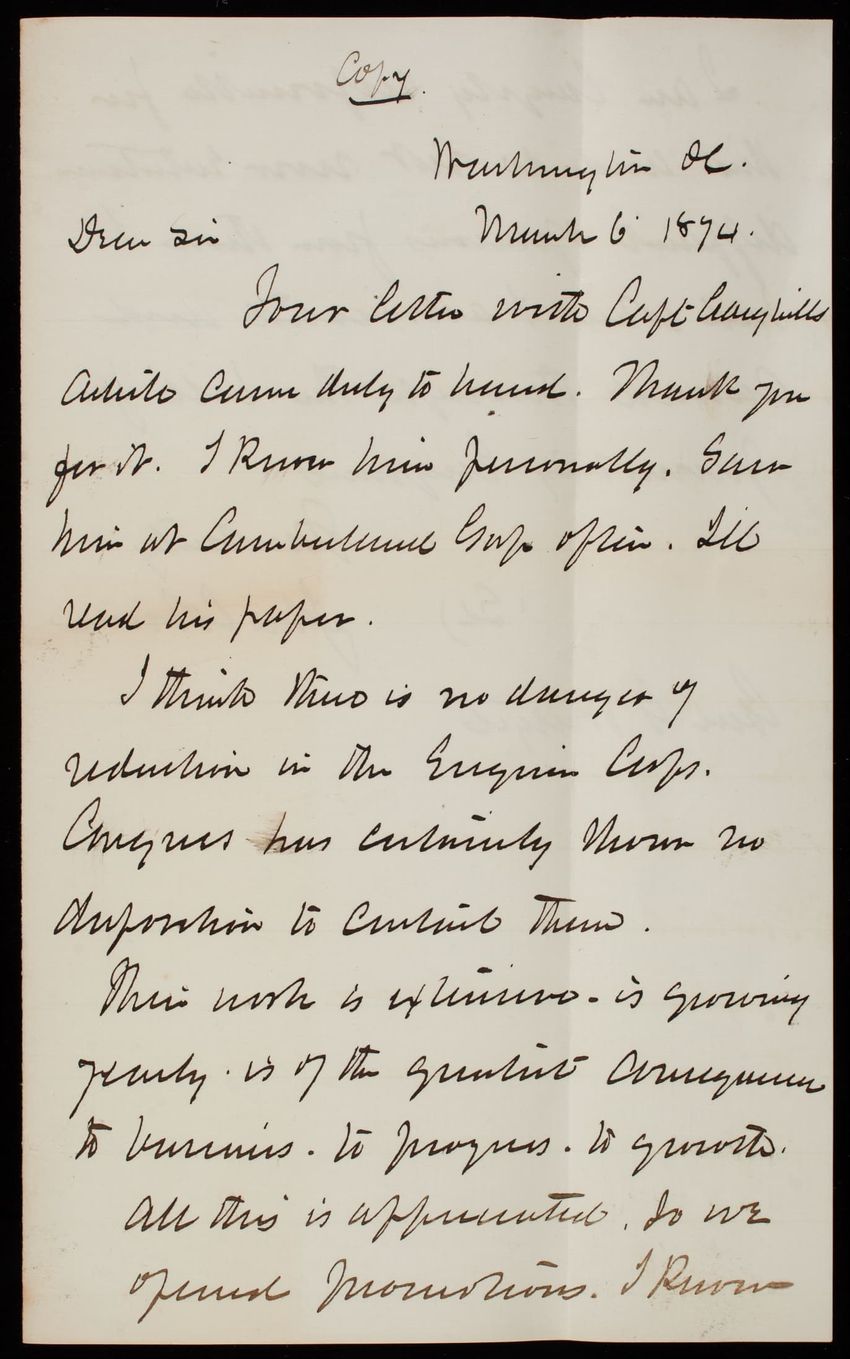 Copy.
Washington DC.
March 6 1874.
Dear Sir
Your letter with Capt
article came duly to hand. Thank you
for it. I know him personally. Saw
him at Cumberland Gap often. I'll
read his paper.
I think there is no danger of
reduction in the Engineer Corps.
Congress has certainly shown no
disposition to curtail them.
Their work is extensive - is growing
yearly. is of the greatest consequence
to business. to progress. to growth.
All this is appreciated. So we
opened promotions. I know